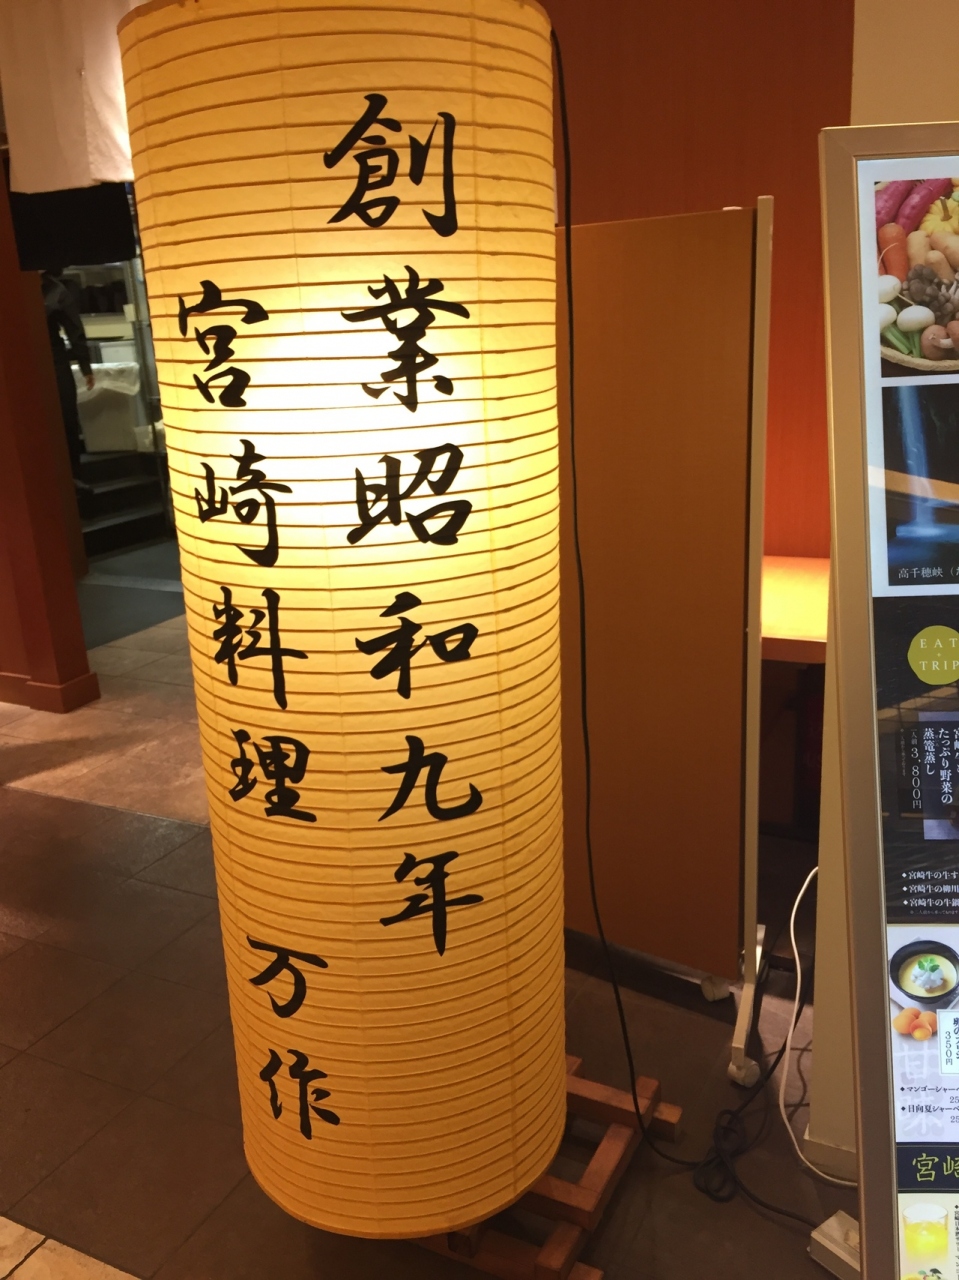 創業昭和九年
宮崎料理 万作
高千穂峡
EAT
TRIP
たっぷり野菜の
蒸篭蒸し
3,800円
◆宮崎牛の牛す
◆宮崎牛の柳川
◆宮崎牛の牛鍋
350円
甘味
◆マンゴーシャーベ
25
◆日向夏シャーベ
25
宮崎